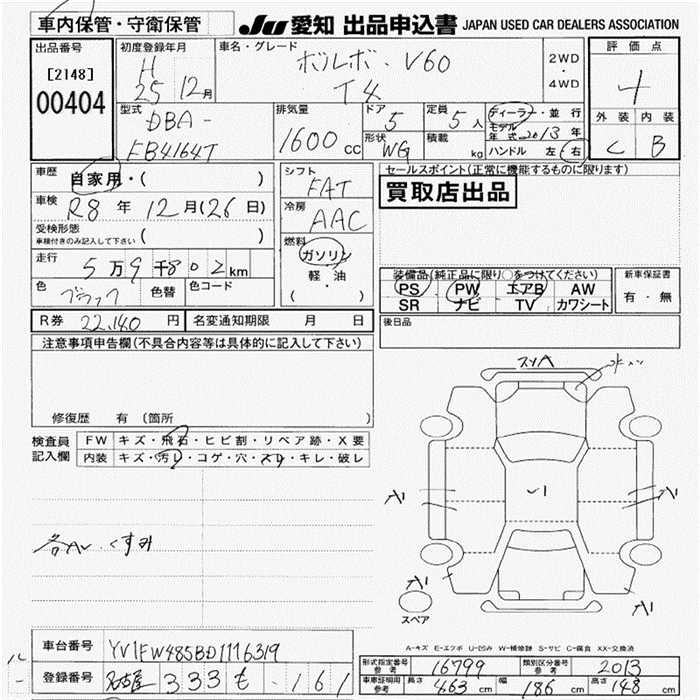 車内保管・守衛保管
JU 愛知 出品申込書 JAPAN USED CAR DEALERS ASSOCIATION
出品番号
[2148]
00404
初度登録年月
H
25 12月
車名・グレード
ボルボ・V60
T4
2WD
・
4WD
評価点
4
外装 内装
C B
型式
DBA-
FB4164T
排気量
1600 cc
ドア
5
形状
WG
定員
5 人
積載
kg
ディーラー・並行
モデル年式 2013 年
ハンドル 左 右
車歴
自家用・( )
車検
R8 年 12 月(26 日)
受検形態
車検付きのみ記入して下さい ( )
走行
5 万 9 千 8 0 2 km
色
ブラック
色替
色コード
シフト
FAT
冷房
AAC
燃料
ガソリン
・
軽・油
( )
セールスポイント(正常に機能するものに限ります)
買取店出品
装備品(純正品に限り○をつけてください)
PS PW エアB AW
SR ナビ TV カワシート
新車保証書
有・無
R券 22,140 円
名変通知期限 月 日
後日品
注意事項申告欄(不具合内容等は具体的に記入して下さい)
修復歴 有 (箇所 )
検査員
記入欄
FW キズ・飛石・ヒビ割・リペア跡・X要
内装 キズ・汚レ・コゲ・穴・スリ・キレ・破レ
スリA
A1
A1
各AU くすみ
A1
スペア
A1
A-キズ E-エクボ U-凹み W-補修跡 S-サビ C-腐食 XX-交換済
車台番号 YV1FW485BD1176319
登録番号 名古屋 333 も ・161
形式指定番号
参考
16799
類別区分番号
参考
2013
車庫証明用
参考
長さ 463 cm 幅 186 cm 高さ 148 cm